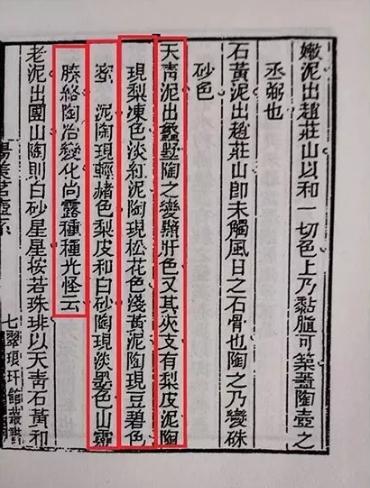 嫩泥出趙莊山以和一切色上乃黏可築蓋陶壺之
丞弼也
石黃泥出趙莊山即未觸風日之石骨也陶之乃變硃
砂色
天青泥出蠡墅陶之變黯肝色又其夾支有梨皮泥陶
現梨凍色淡紅泥陶現松花色淺黃泥陶現豆碧色
密泥陶現輕赭色梨皮和白砂陶現淡墨色山靈
腠絡陶冶變化尚露種種光怪云
老泥出國山陶則白砂星星按若珠琲以天青石黃和
陽羨茗壺系
七翠琅玕館叢書